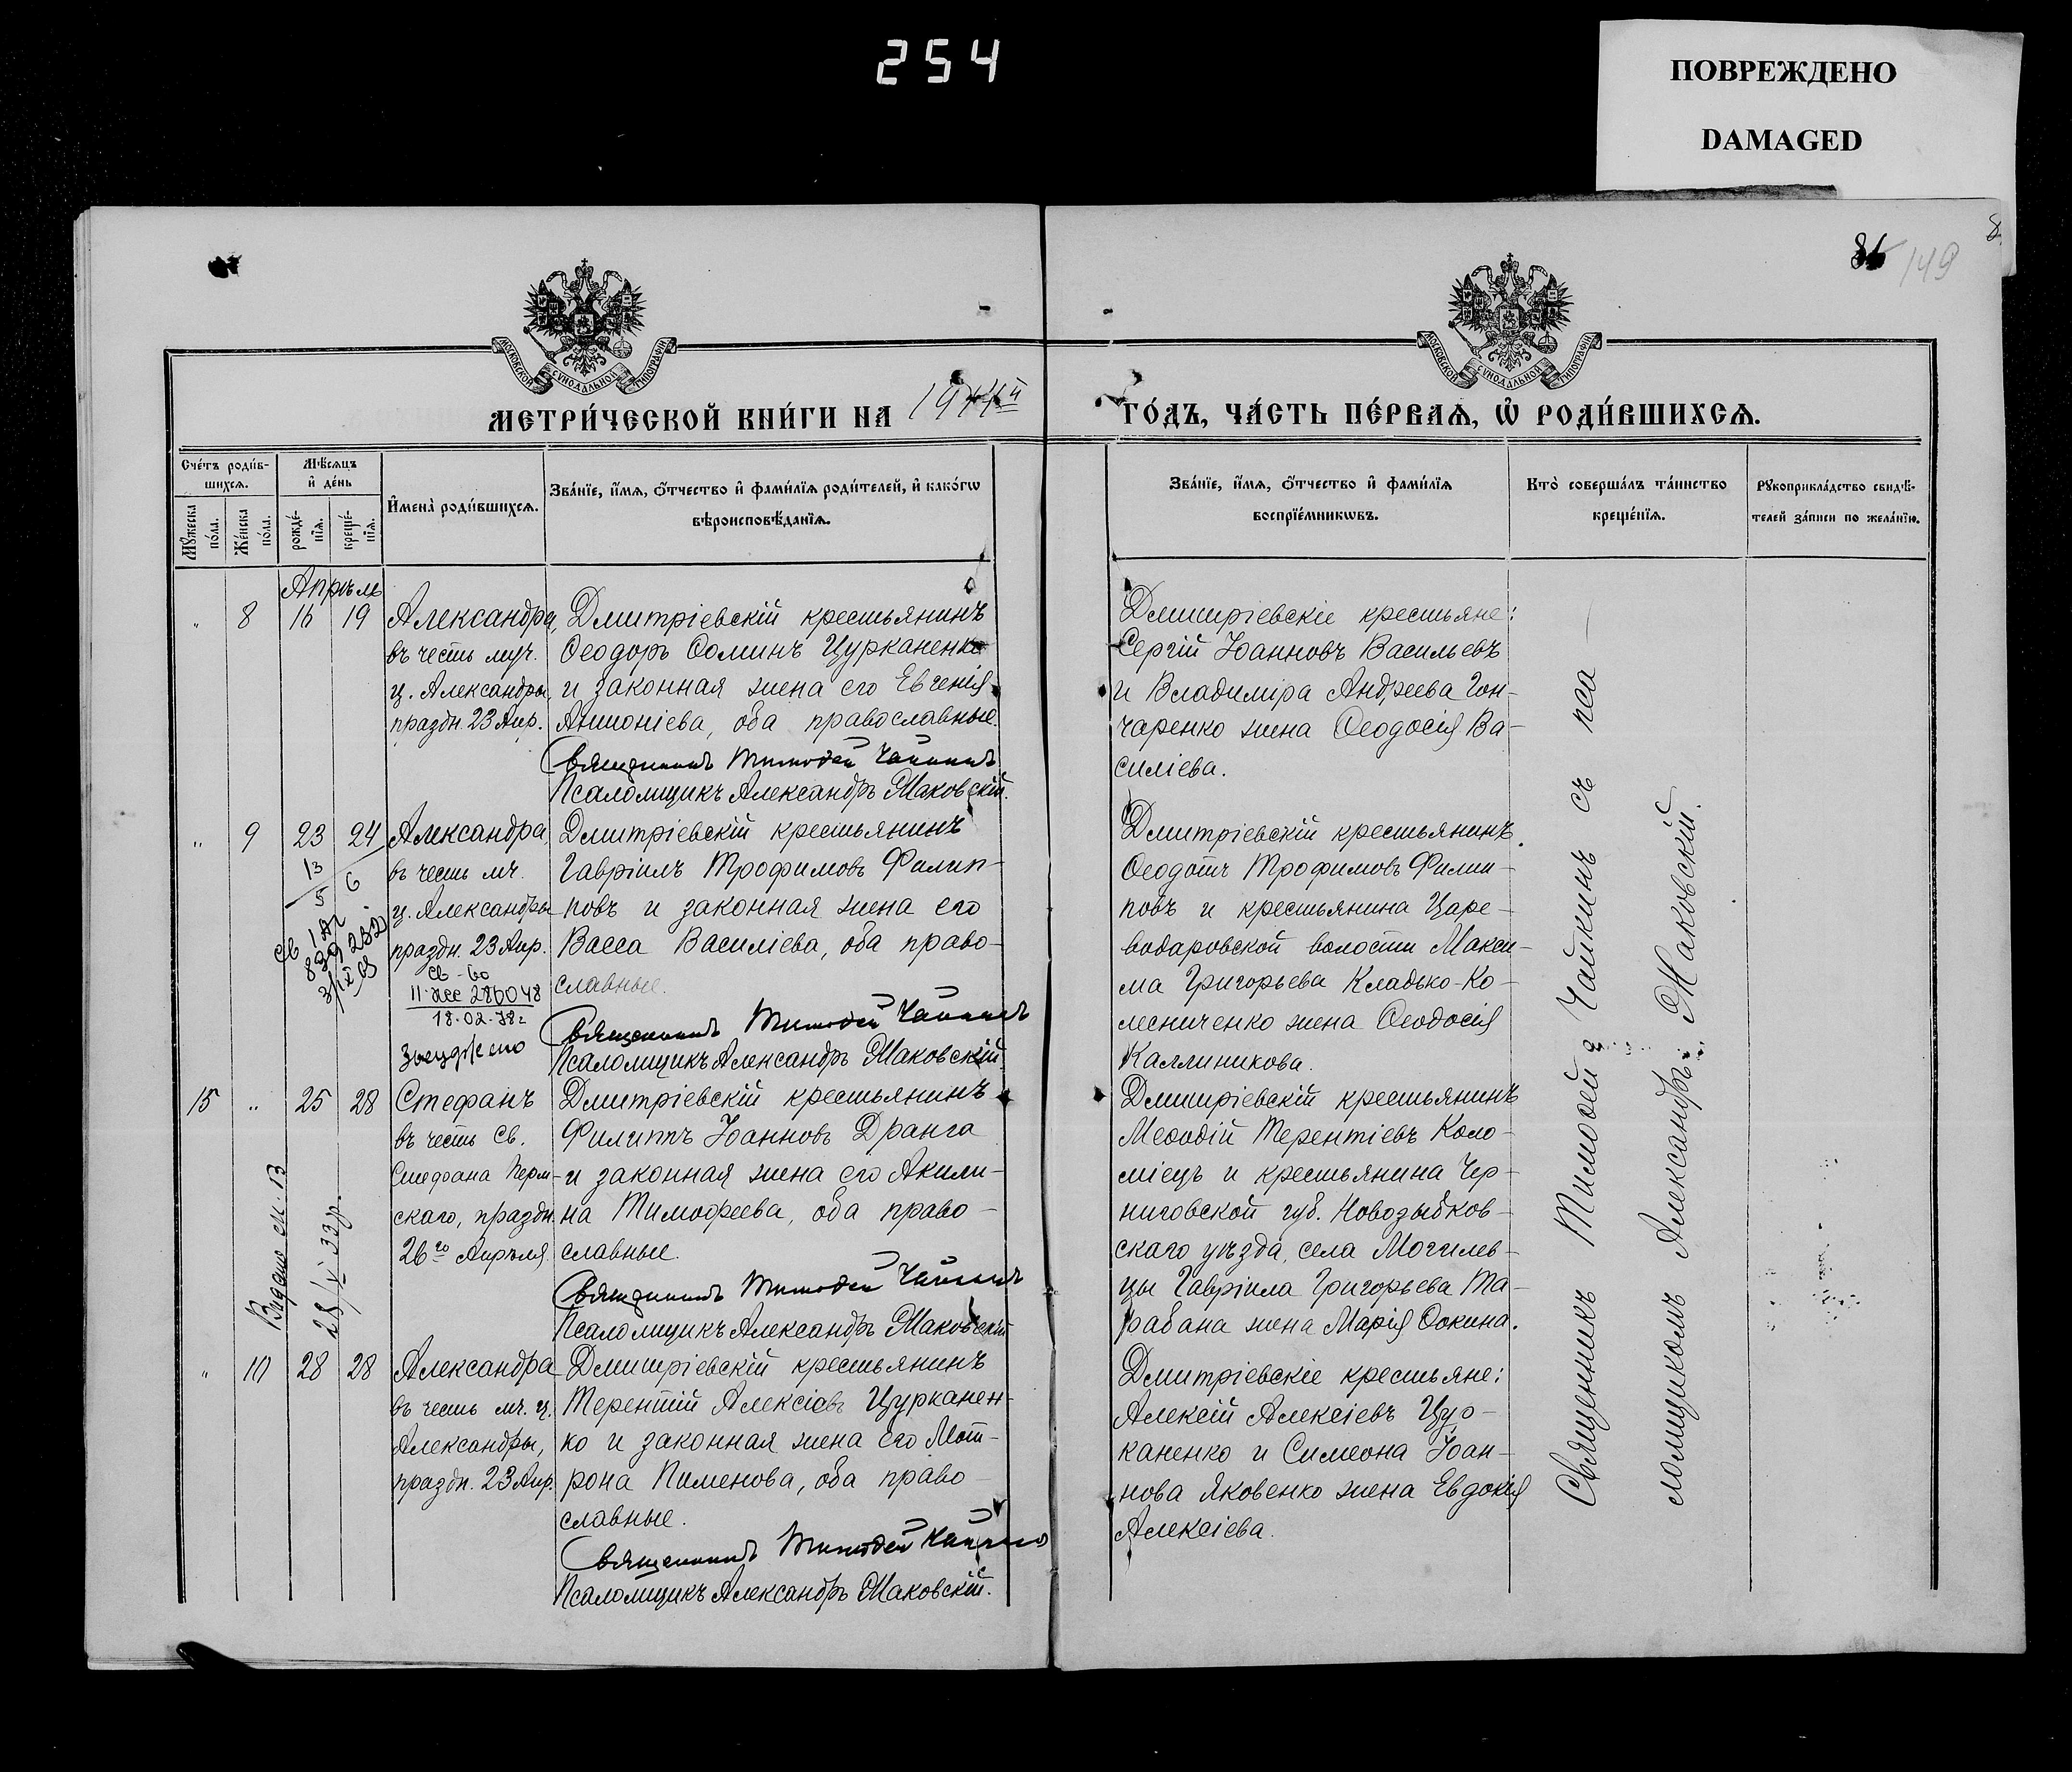 254
ПОВРЕЖДЕНО
DAMAGED
149
МОСКОВСКОЙ СУНОДАЛЬНОЙ ТИПОГРАФІИ
МОСКОВСКОЙ СУНОДАЛЬНОЙ ТИПОГРАФІИ
МЕТРИ́ЧЕСКОЙ КНИ́ГИ НА
ГО́ДЪ, ЧА́СТЬ ПЕ́РВАѦ, Ѡ҆ РОДИ́ВШИХСѦ.
Сче́тъ роди́в-
шихсѧ.
Мѣ́сѧцъ
и҆ де́нь
И҆мена̀ роди́вшихсѧ.
Зва́нїе, и҆́мѧ, ѻ҆́тчество и҆ фами́лїѧ роди́телей, и҆ како́гѡ
вѣроисповѣ́данїѧ.
Мꙋ́жеска
по́ла.
Же́нска
по́ла.
рожде́-
нїѧ.
креще́-
нїѧ.
Зва́нїе, и҆́мѧ, ѻ҆́тчество и҆ фами́лїѧ
воспрїе́мникѡвъ.
Кто̀ соверша́лъ та́инство
креще́нїѧ.
Рꙋкоприкла́дство свидѣ́-
телей за́писи по жела́нїю.
Апрѣль
" 8 16 19
Александра,
въ честь муч.
ц. Александры,
праздн. 23 Апр.
Дмитріевскій крестьянинъ
Ѳеодоръ Ѳоминъ Цурканенко
и законная жена его Евгенія
Антоніева, оба православные.
Священникъ Тимоѳей Чайкинъ
Псаломщикъ Александръ Маковскій.
Дмитріевскіе крестьяне:
Сергій Іоанновъ Васильевъ
и Владиміра Андреева Гон-
чаренко жена Ѳеодосія Ва-
силіева.
" 9 23 24
13
5
6
Александра,
въ честь мч.
ц. Александры
праздн. 23 Апр.
286048
18.02.78г
Дмитріевскій крестьянинъ
Гавріилъ Трофимовъ Филип-
повъ и законная жена его
Васса Василіева, оба право-
славные.
Священникъ Тимоѳей Чайкинъ
Псаломщикъ Александръ Маковскій.
Дмитріевскій крестьянинъ
Ѳеодотъ Трофимовъ Филип-
повъ и крестьянина Царе-
водаровской волости Макси-
ма Григорьева Кладько-Ко-
лесниченко жена Ѳеодосія
Каллиникова.
15 " 25 28
28/X 33 р.
Стефанъ
въ честь Св.
Стефана Перм-
скаго, праздн.
26го Апрѣля.
Дмитріевскій крестьянинъ
Филиппъ Іоанновъ Дранга
и законная жена его Акили-
на Тимофеева, оба право-
славные.
Священникъ Тимоѳей Чайкинъ
Псаломщикъ Александръ Маковскій
Дмитріевскій крестьянинъ
Меѳодій Терентіевъ Коло-
міецъ и крестьянина Чер-
ниговской губ. Новозыбков-
скаго уѣзда, села Могилев-
цы Гавріила Григорьева Та-
рабана жена Марія Ѳокина.
" 10 28 28
Александра
въ честь мч. ц.
Александры,
праздн. 23 Апр.
Дмитріевскій крестьянинъ
Терентій Алексіевъ Цурканен-
ко и законная жена его Мат-
рона Пименова, оба право-
славные.
Священникъ Тимоѳей Чайкинъ
Псаломщикъ Александръ Маковскій.
Дмитріевскіе крестьяне:
Алексій Алексіевъ Цур-
каненко и Симеона Іоан-
нова Яковенко жена Евдокія
Алексіева.
Священникъ Тимоѳей Чайкинъ съ пса
ломщикомъ Александръ: Маковскій.